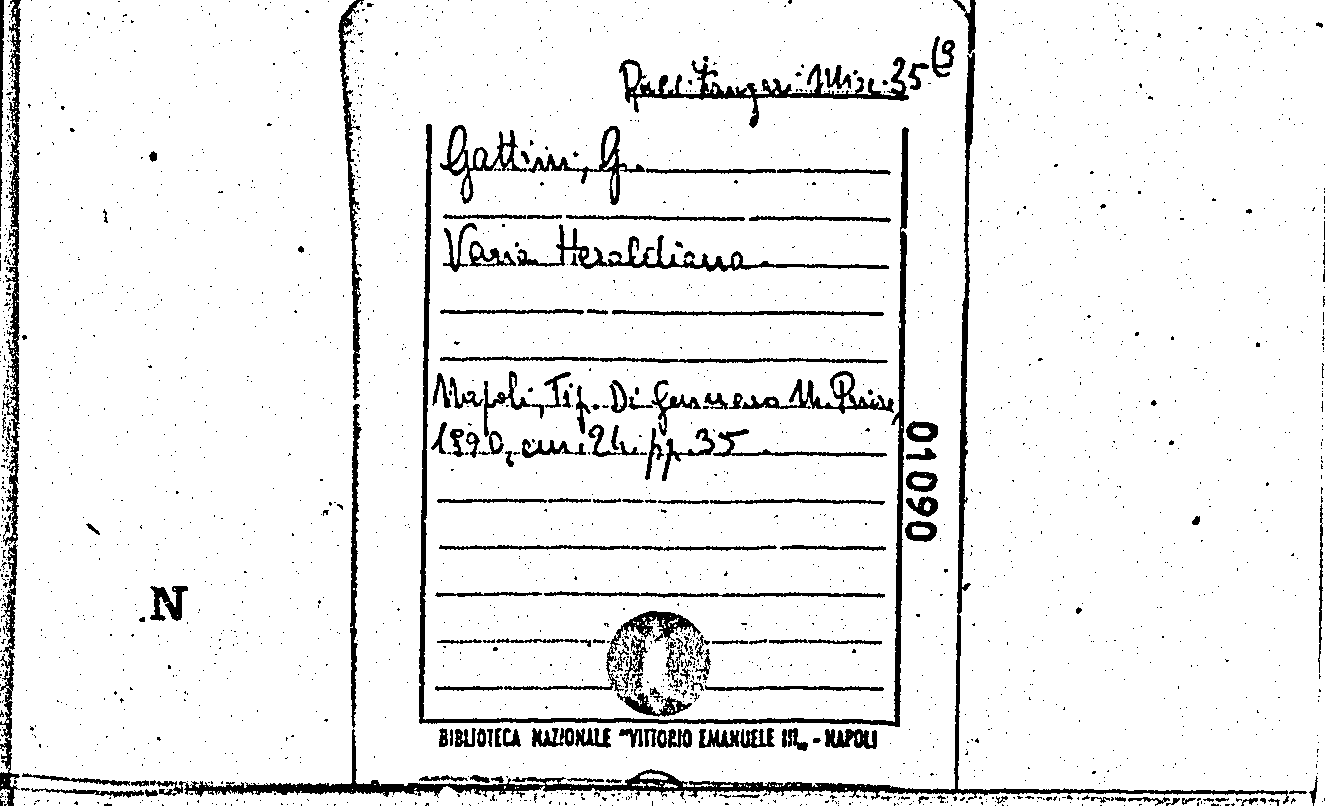 Racc. Zangari Misc. 35 (9
Gattini, G.
Varia Heraldiana.
Napoli, Tip. Di Gennaro M. Priore,
1890, cm. 24. pp. 35.
01090
N
BIBLIOTECA NAZIONALE "VITTORIO EMANUELE III„ - NAPOLI